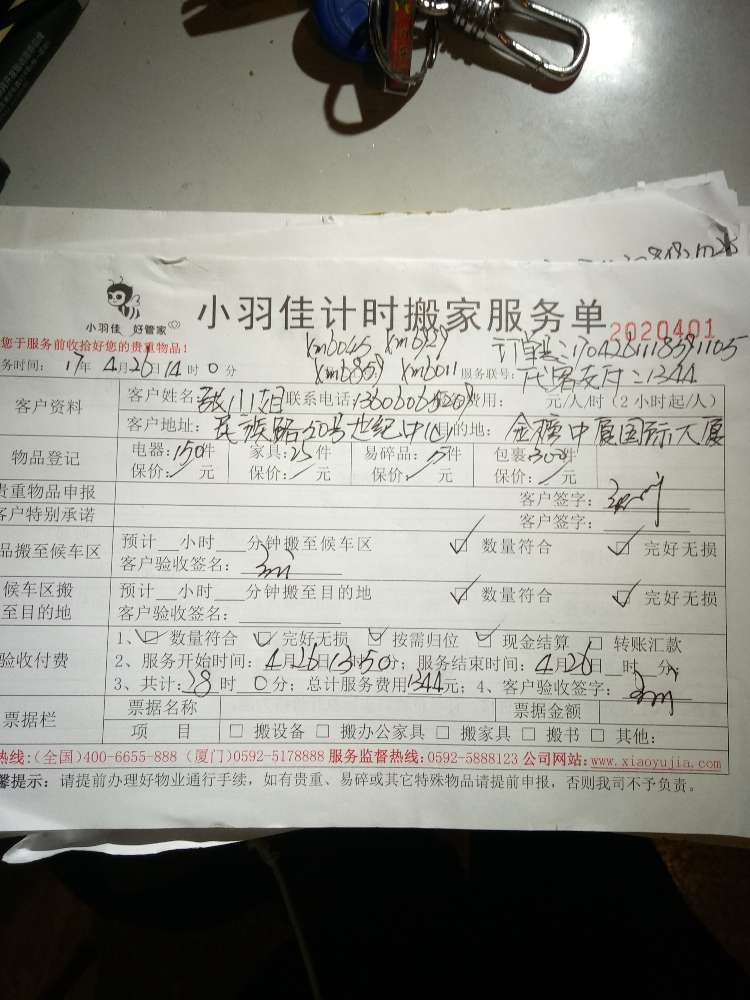 小羽佳 好管家
小羽佳计时搬家服务单
2020401
您于服务前收拾好您的贵重物品!
xm6045 xm6929
订单号:1704261118591105
务时间: 17年 4月26日14时0分
xm6859 xm6011
服务联号:
代客支付:1344
客户资料
客户姓名: 小姐 联系电话: 费用: 元/人/时(2小时起/人)
客户地址: 民族路50号世纪中心 目的地: 金榜中厦国际大厦
物品登记
电器:150件 家具:25件 易碎品:5件 包裹:300件
保价: 元 保价: 元 保价: 元 保价: 元
贵重物品申报 客户签字:
客户特别承诺 客户签字:
品搬至候车区
预计__小时___分钟搬至候车区 ☑ 数量符合 ☑ 完好无损
客户验收签名:
候车区搬至目的地
预计__小时___分钟搬至目的地 ☑ 数量符合 ☑ 完好无损
客户验收签名:
验收付费
1、☑ 数量符合 ☑ 完好无损 ☑ 按需归位 ☑ 现金结算 □ 转账汇款
2、服务开始时间:4月26日13时50分;服务结束时间:4月26日__时__分
3、共计:28时 0分;总计服务费用1344元;4、客户验收签字:
票据栏
票据名称 票据金额
项 目 □ 搬设备 □ 搬办公家具 □ 搬家具 □ 搬书 □ 其他:
热线:(全国)400-6655-888 (厦门)0592-5178888 服务监督热线:0592-5888123 公司网站:www.xiaoyujia.com
馨提示:请提前办理好物业通行手续,如有贵重、易碎或其它特殊物品请提前申报,否则我司不予负责。